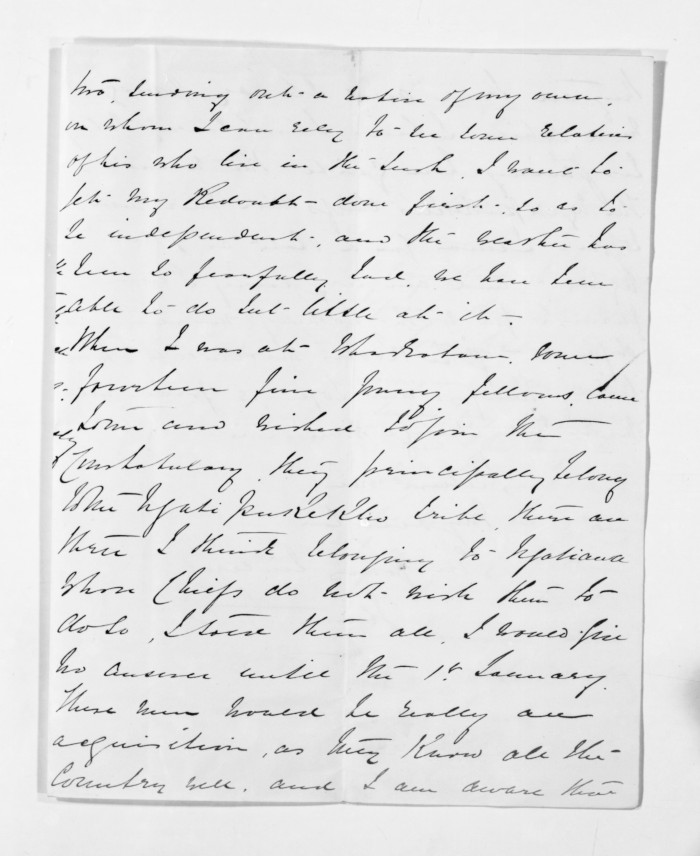 two, sending out a native of my own,
on whom I can rely to see some relations
of his who live in the bush. I want to
get my Redoubt done first, so as to
be independent, and the weather has
been so fearfully bad, we have been
able to do but little at it.
When I was at Whakatane some
fourteen fine young fellows, came
to me and wished to join the
Constabulary they principally belong
to the Ngati Pukekko tribe, there are
three I think belonging to Ngatiawa
whose Chiefs do not wish them to
do so, I told them all, I would give
no answer until the 1st January.
These men would be really an
acquisition, as they know all the
Country well. and I am aware that